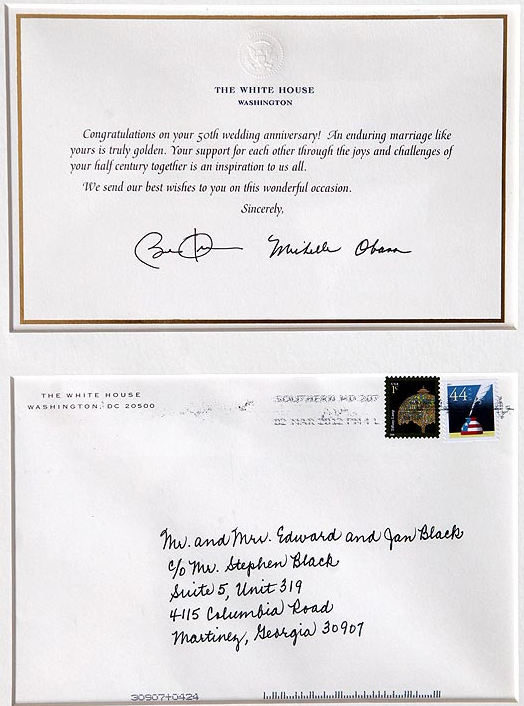 THE WHITE HOUSE
WASHINGTON
Congratulations on your 50th wedding anniversary! An enduring marriage like
yours is truly golden. Your support for each other through the joys and challenges of
your half century together is an inspiration to us all.
We send our best wishes to you on this wonderful occasion.
Sincerely,
Michelle Obama
THE WHITE HOUSE
WASHINGTON, DC 20500
SOUTHERN MD 207
02 MAR 2012 PM 4 L
44
Mr. and Mrs. Edward and Jan Black
c/o Mr. Stephen Black
Suite 5, Unit 319
4115 Columbia Road
Martinez, Georgia 30907
30907+0424